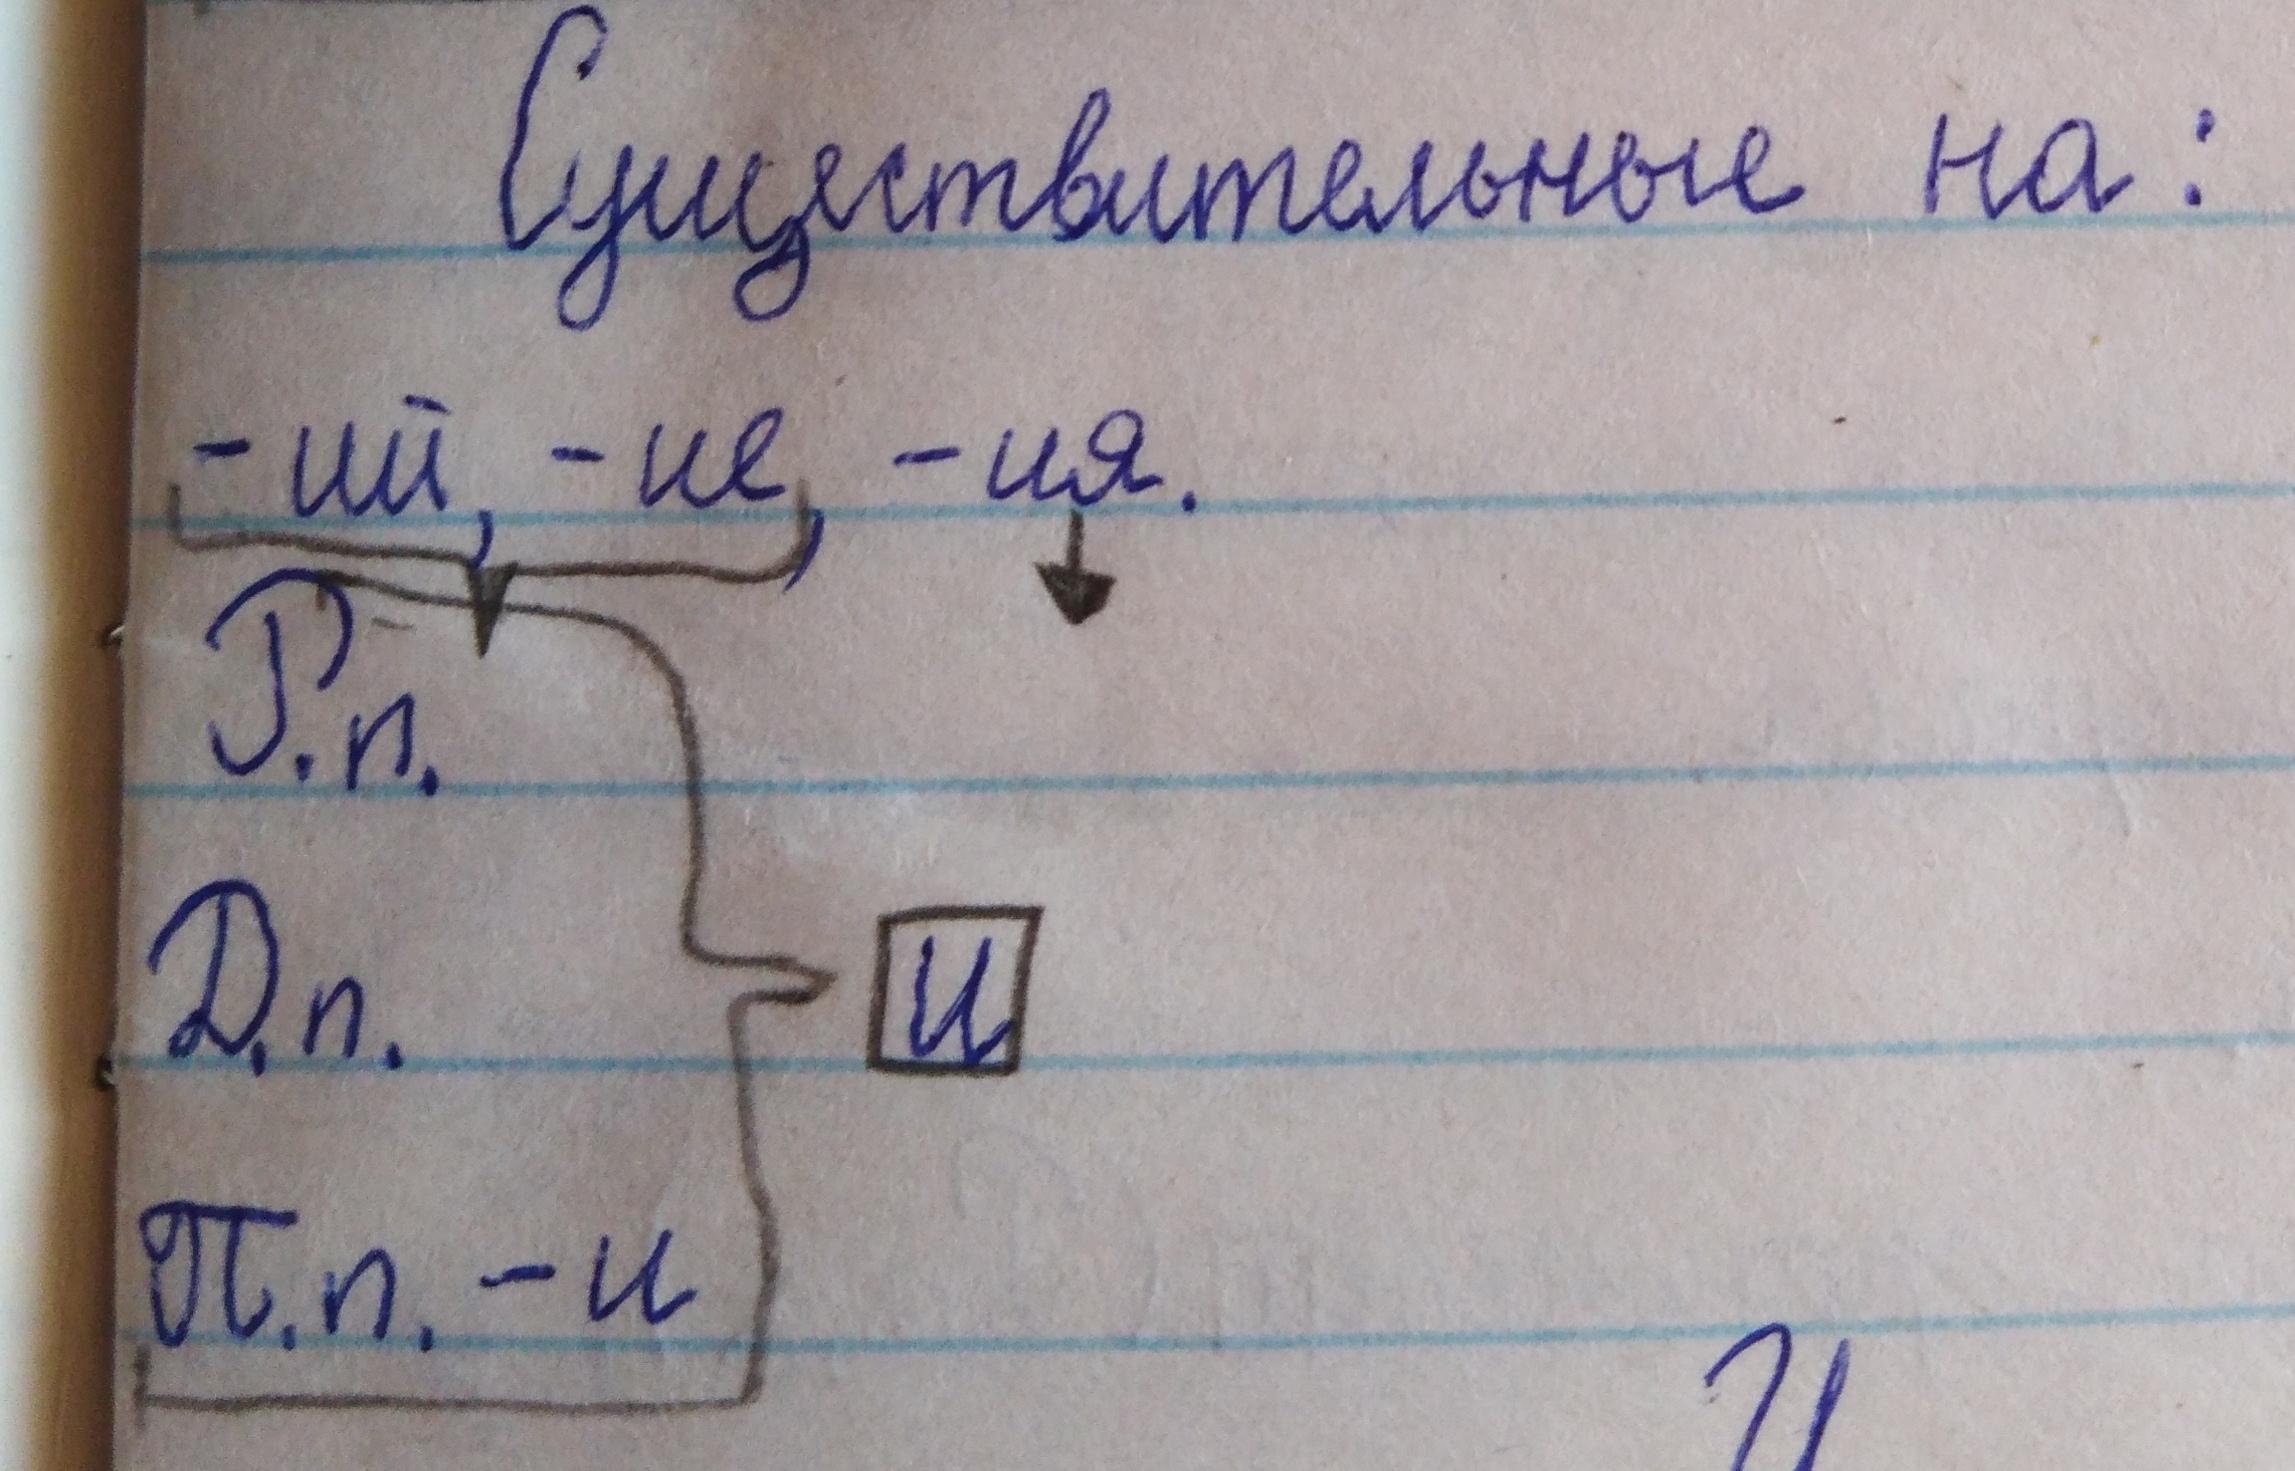 Существительные на:
-ий, -ие, -ия.
Р.п.
Д.п.
и
П.п. -и